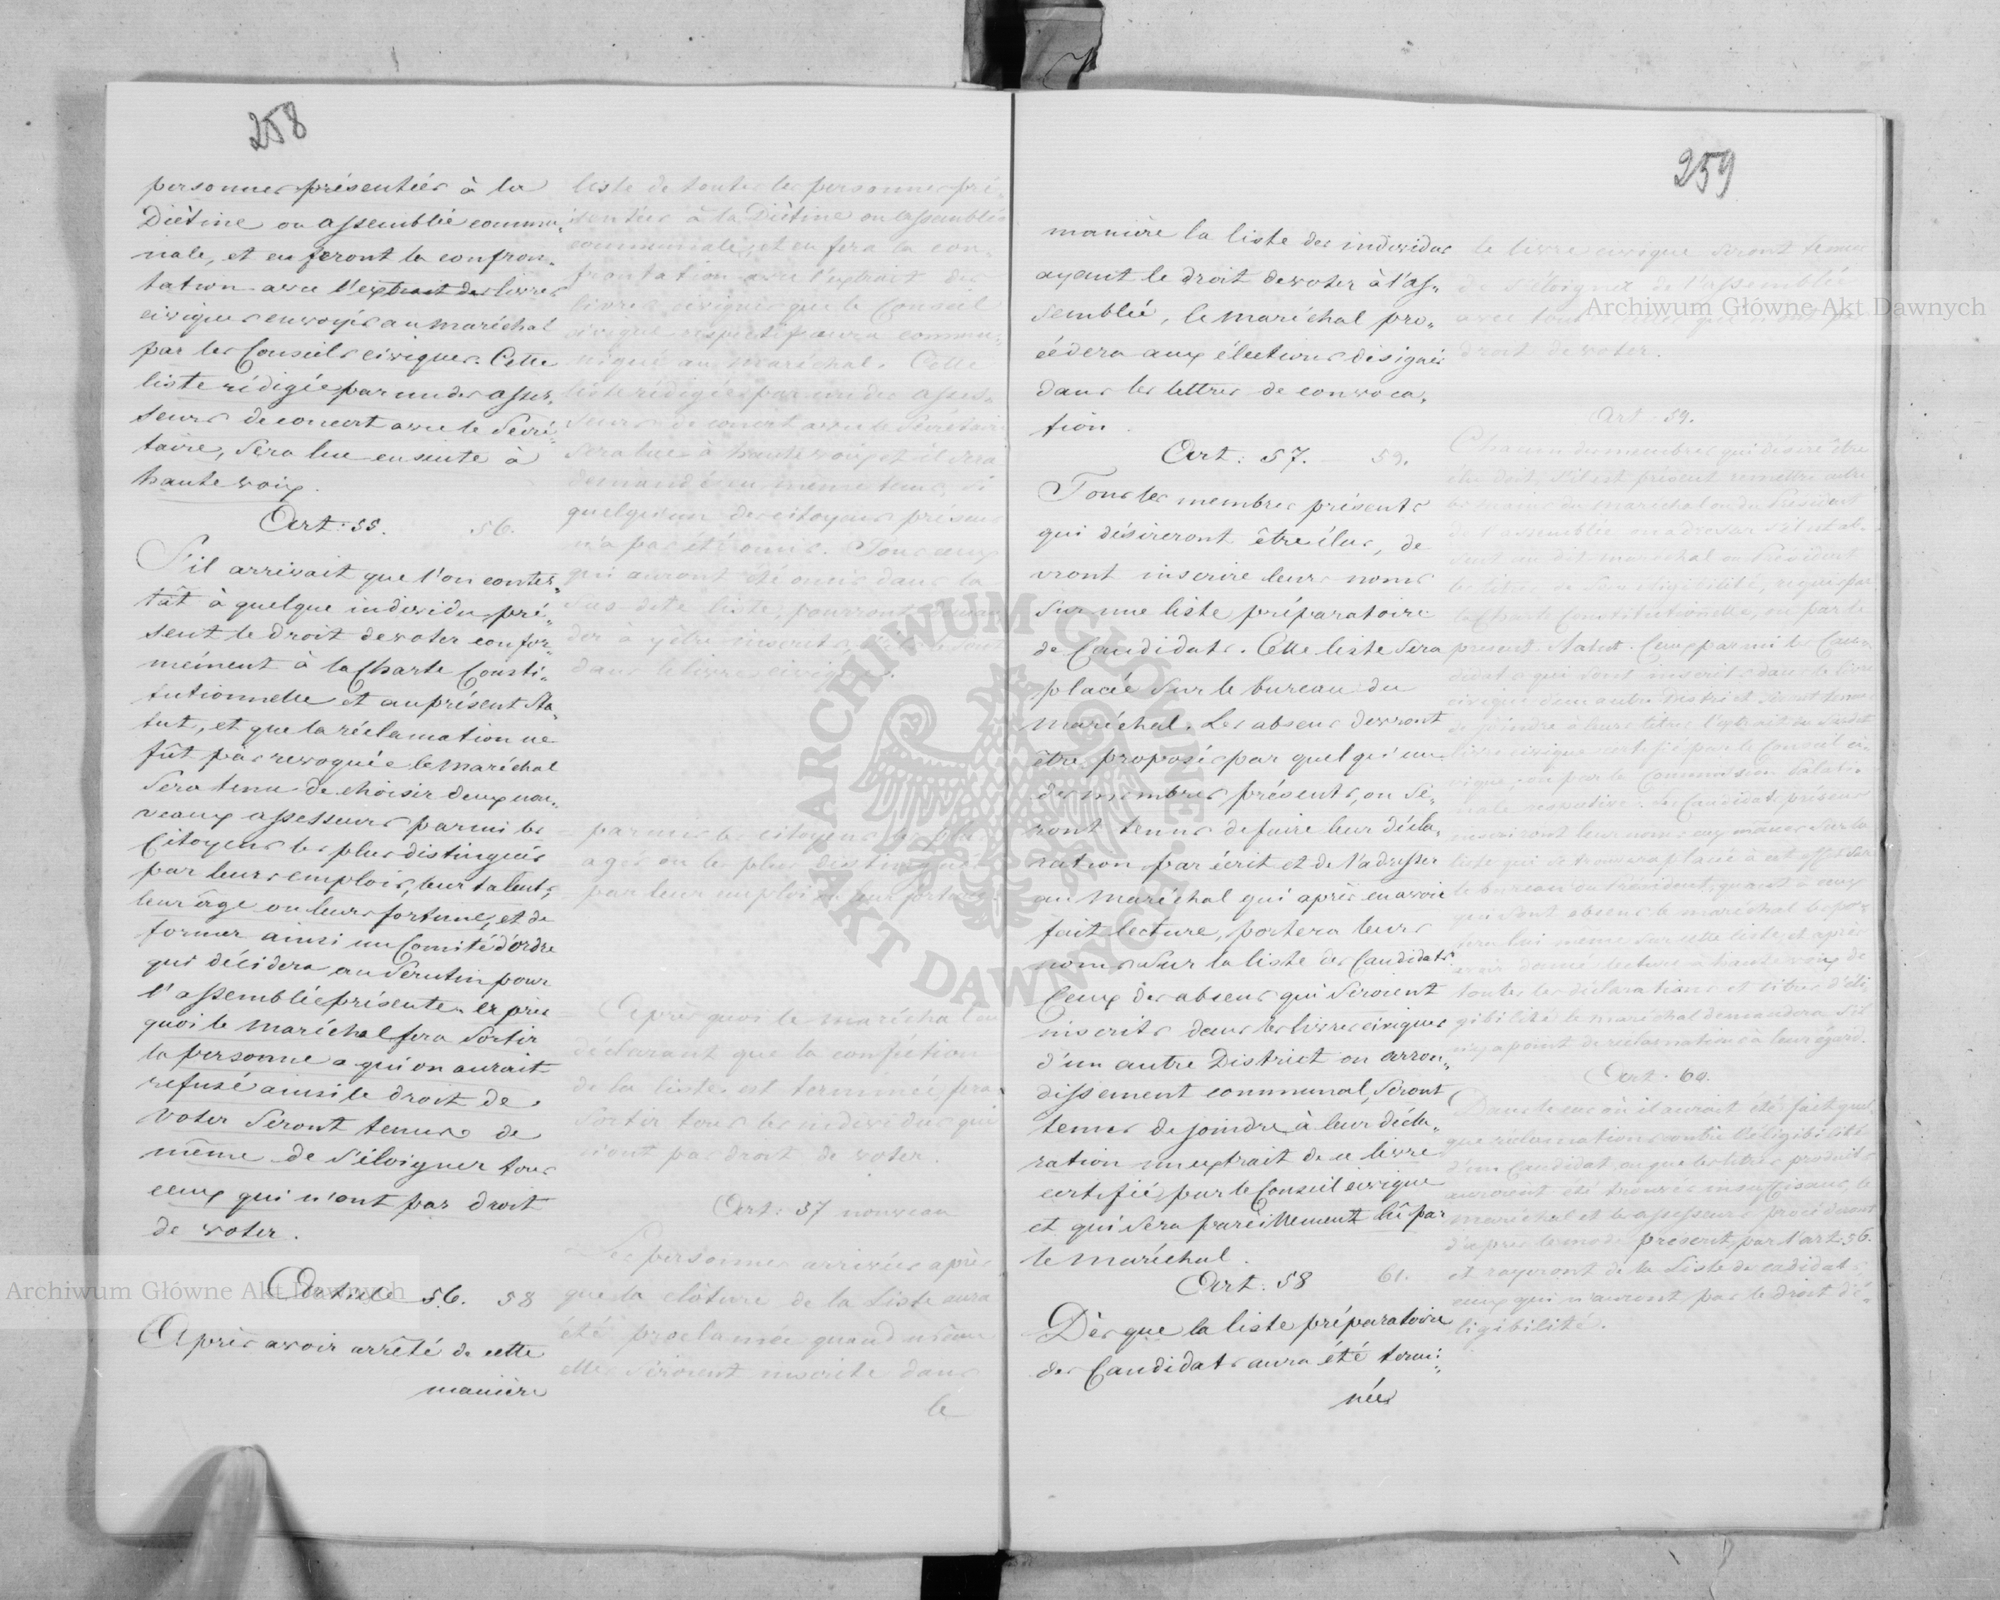 258
personnes présentées à la
Diètine ou assemblée commu-
nale, et en feront la confron-
tation avec l'extrait des livres
civiques envoyés au maréchal
par les Conseils civiques. Cette
liste rédigée par un des asses-
seurs de concert avec le Secré-
taire, sera lue ensuite à
haute voix.
Art. 55. 56.
S'il arrivait que l'on contes-
tât à quelque individu pré-
sent le droit de voter confor-
mément à la Charte Consti-
tutionnelle et au présent Sta-
tut, et que la réclamation ne
fût pas revoquée le maréchal
sera tenu de choisir deux nou-
veaux assesseurs parmi les
Citoyens les plus distingués
par leurs emplois, leur talents,
leur âge ou leurs fortune, et de
former ainsi un Comité d'ordre
qui décidera au Scrutin pour
l'assemblée présente. après
quoi le maréchal fera sortir
la personne a qui on aurait
refusé ainsi le droit de
voter seront tenus de
même de s'éloigner tous
ceux qui n'ont pas droit
de voter.
Article 56. 58
Après avoir arrêté de cette
manière
liste de toutes les personnes pré-
sentées à la Diètine ou assemblée
communale, et en fera la con-
frontation avec l'extrait des
livres civiques que le Conseil
civique respectif aura commu-
niqué au maréchal. Cette
liste rédigée par un des asses-
seurs de concert avec le Secrétaire
sera lue à haute voix et il sera
demandé en même tems, si
quelqu'un des citoyens présens
n'a pas été omis. Tous ceux
qui auront été omis dans la
sus-dite liste, pourront deman-
der à y être inscrits, s'ils le sont
dans le livre civique.
parmi les citoyens les plus
agés ou les plus distingués
par leur emploi et leur fortune.
Après quoi le maréchal en
déclarant que la confection
de la liste est terminée, fera
sortir tous les individus qui
n'ont pas droit de voter.
Art. 57 nouveau
Les personnes arrivées après
que la clôture de la Liste aura
été proclamée quand même
elles seroient inscrite dans
le
259
manière la liste des individus
ayant le droit de voter à l'as-
semblée, le maréchal pro-
cédera aux élections désignés
dans les lettres de convoca-
tion.
Art: 57. 59.
Tous les membres présents
qui désireront être élus, de
vront inscrire leurs noms
sur une liste préparatoire
de Candidats. Cette liste sera
placée sur le bureau du
maréchal. Les absens devront
être proposés par quelqu'un
des membres présents, ou se-
ront tenus de faire leur décla-
ration par écrit et de l'adresser
au maréchal qui après en avoir
fait lecture, portera leurs
noms sur la liste des Candidats.
Ceux des absens qui seroient
inscrits dans les livres civiques
d'un autre District ou arron-
dissement communal, seront
tenus de joindre à leur décla-
ration un extrait de ce livre
certifié par le Conseil civique
et qui sera pareillement lû par
le maréchal.
Art. 58 61.
Dès que la liste préparatoire
des Candidats aura été termi-
née
le livre civique seront tenus
de s'éloigner de l'assemblée
avec tous
droit de voter.
Art. 59.
Chacun des membres qui désire être
élu doit, s'il est présent remettre entre
les mains du maréchal ou du Président
de l'assemblée
dit maréchal ou Président
les titres de son éligibilité, requis par
la Charte Constitutionnelle, ou par le
présent Statut. Ceux parmi les Can-
didats qui sont inscrits dans le livre
civique d'un autre District seront tenus
de joindre à leurs titres l'extrait du susdit
livre civique certifié par le Conseil ci-
vique, ou par la Commission Palati-
nale respective. Les Candidats présens
inscriront leur noms eux mêmes sur la
liste qui se trouvera placée à cet effet sur
le bureau du Président; quant à ceux
qui sont absens le maréchal les por-
tera lui même sur cette liste, et après
avoir donné lecture à haute voix de
toutes les déclarations et titres d'éli-
gibilité le maréchal demandera s'il
n'y a point de réclamation à leur égard.
Art. 60.
Dans le cas où il auroit été fait quel-
que réclamation contre l'éligibilité
d'un Candidat, ou que les titres produits
auroient été trouvés insuffisans, le
maréchal et les assesseurs procéderont
d'après le mode prescrit par l'art. 56.
et rayeront de la Liste de cadidats
ceux qui n'auront pas le droit d'é-
ligibilité.
Archiwum Główne Akt Dawnych
Archiwum Główne Akt Dawnych
ARCHIWUM GŁÓWNE AKT DAWNYCH